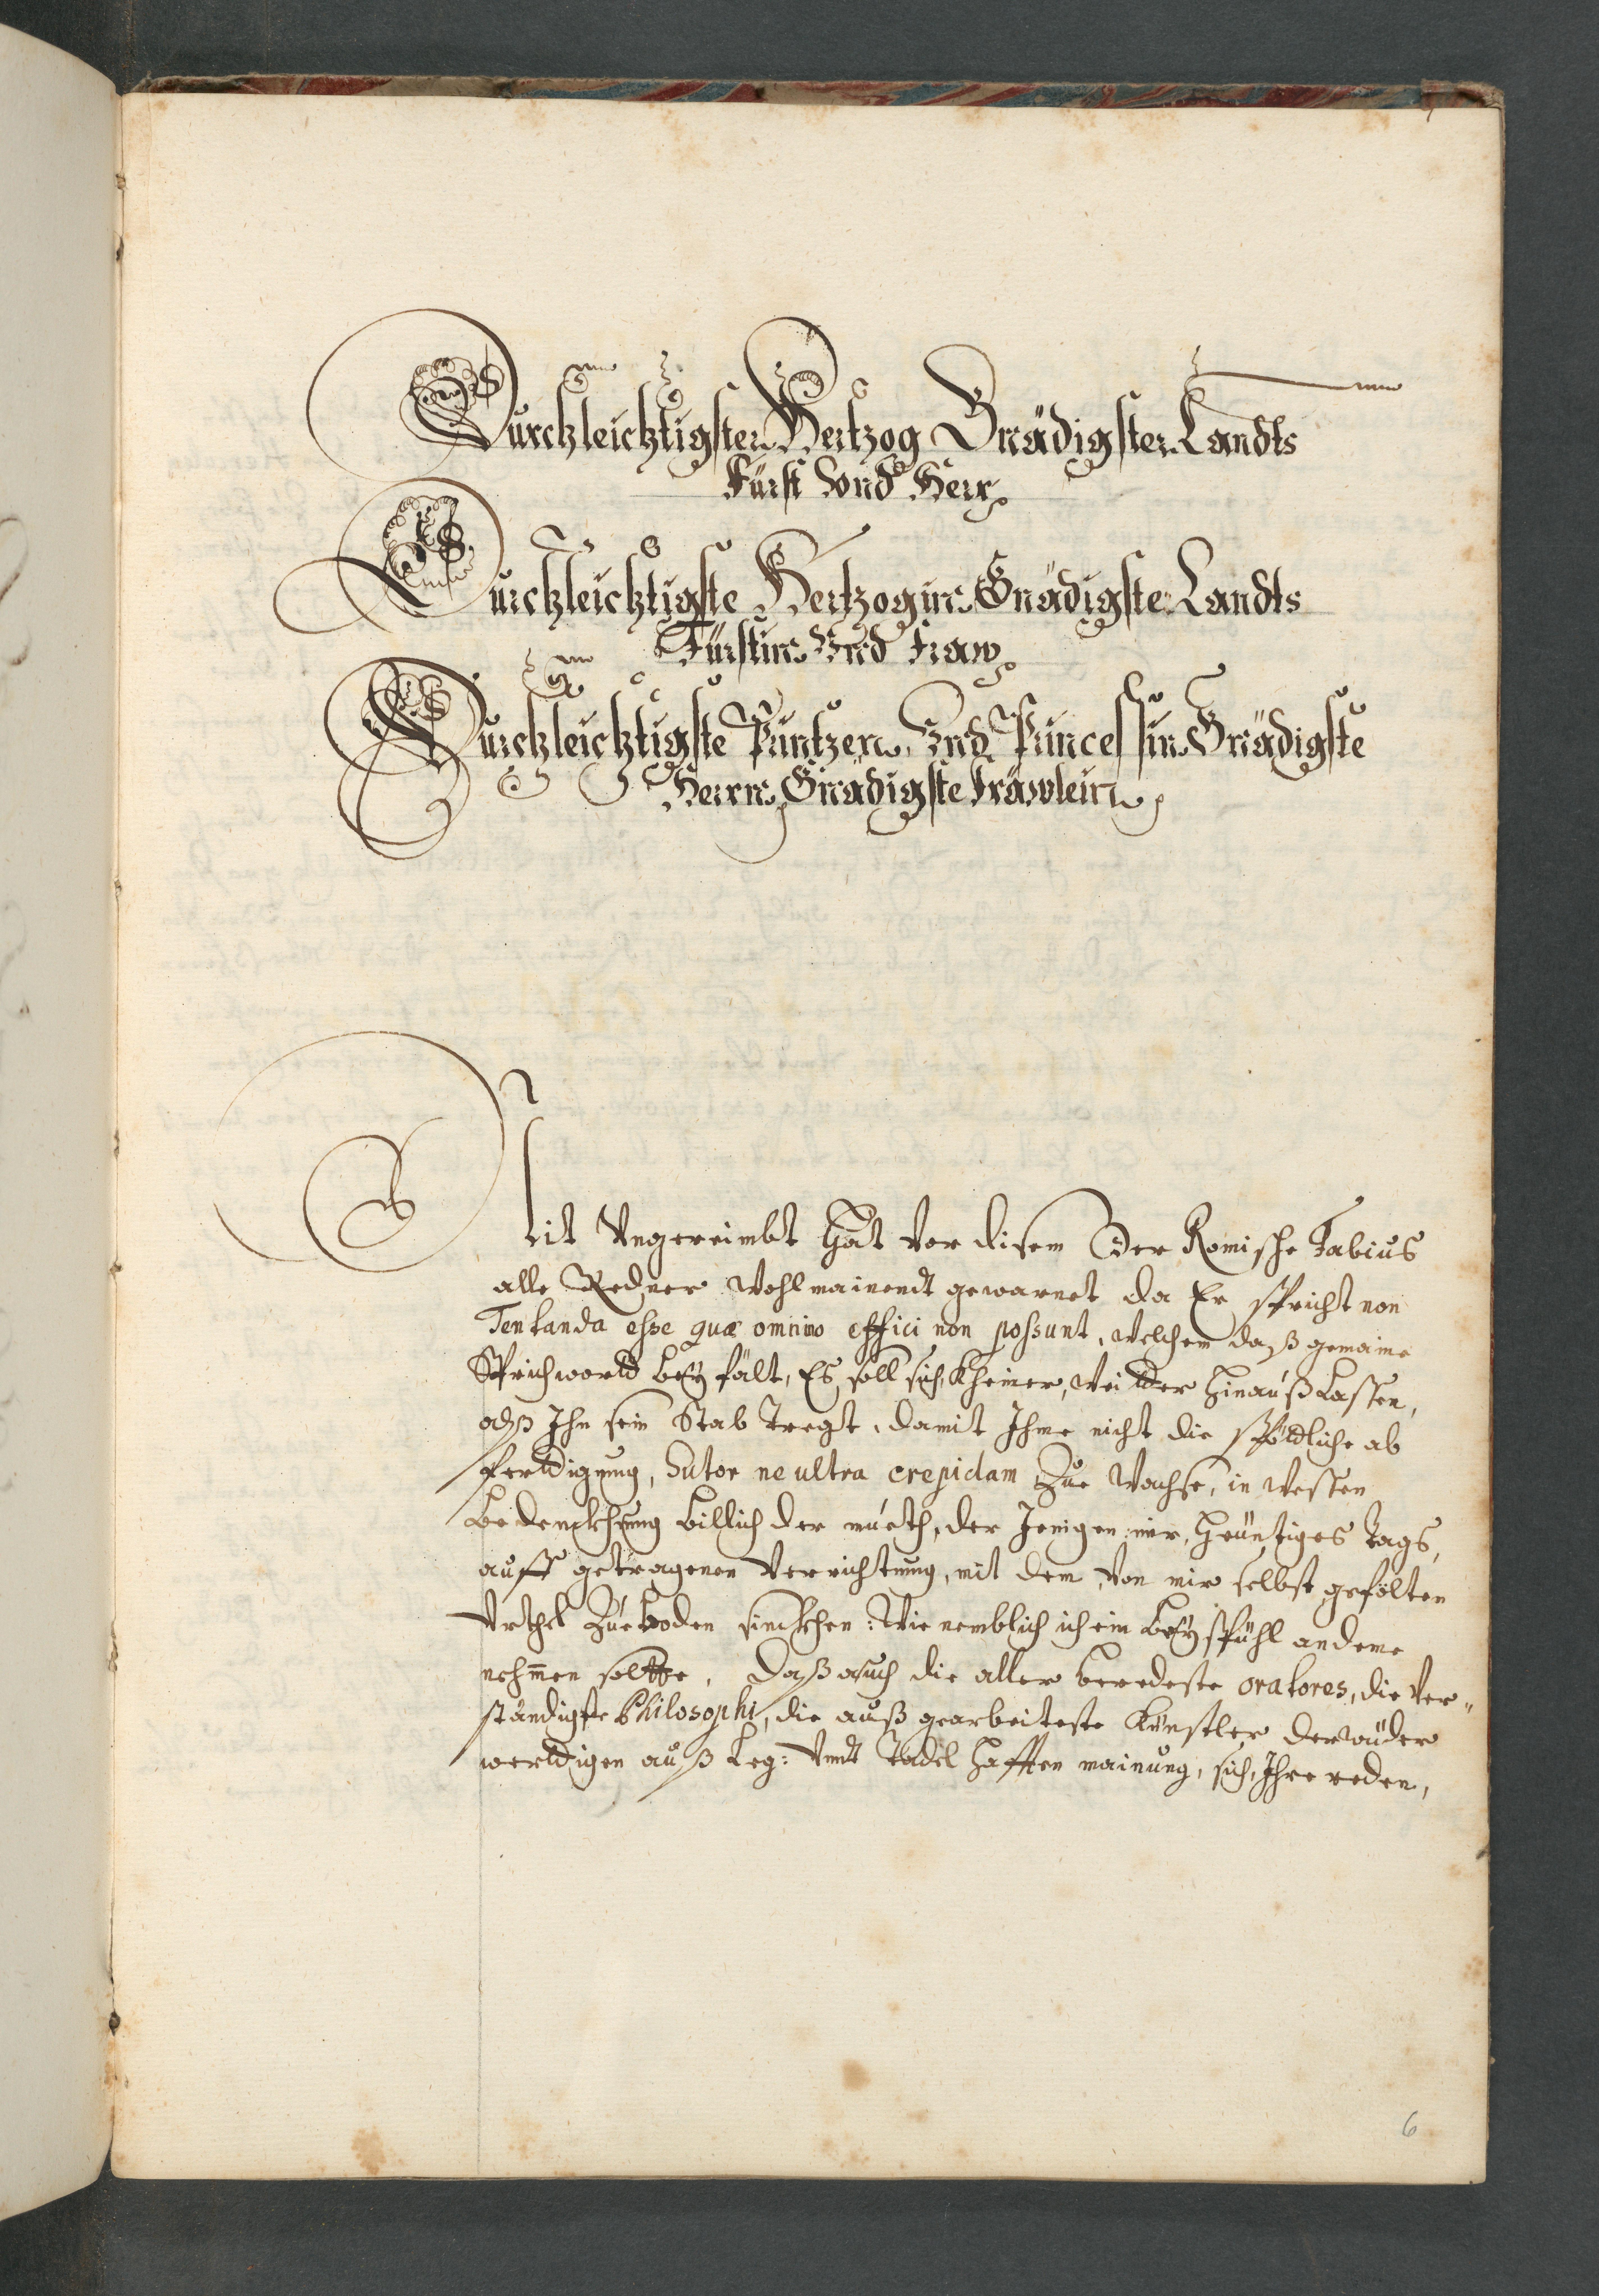 Durchleichtigster Hertzog Gnädigster Landts
Fürst Vnd Herr
Durchleichtigste Hertzogin Gnädigste Landts
Fürstin Vnd Fraw
Durchleichtigste Printzen Vnd Princessin Gnädigste
Herrn Gnädigste Fräwlein
Nit Vngereimbt Hat Vor disem Der Romische Fabius
alle Redner Wohlmainendt gewarnet da Er spricht non
Tentanda esse quæ omnino effici non possunt, welchem daß gemaine
Sprichwordt beyfält, Es soll sich Kheiner, weitter hinauß Lassen,
alß Ihn sein Stab Tregt, damit Ihme nicht die spödliche ab
ferttigung, Sutor ne ultra crepidam Zue Wachse, in Wessen
Bedenckhung billich der mueth, der Jenigen mir, Heüntiges Tags,
auff getragenen Verrichtung, mit dem Von mir selbst gefölten
Vrthel Zue boden sinckhen: Wie nemblich ich ein beyspühl an deme
nehmen soltte, Daß auch die aller beredeste oratores, die Ver-
ständigste Philosophi, die auß gearbeiteste Künstler der wüder
werttigen auß Leg: Vndt Tadel hafften mainung, sich, Ihre reden,
6